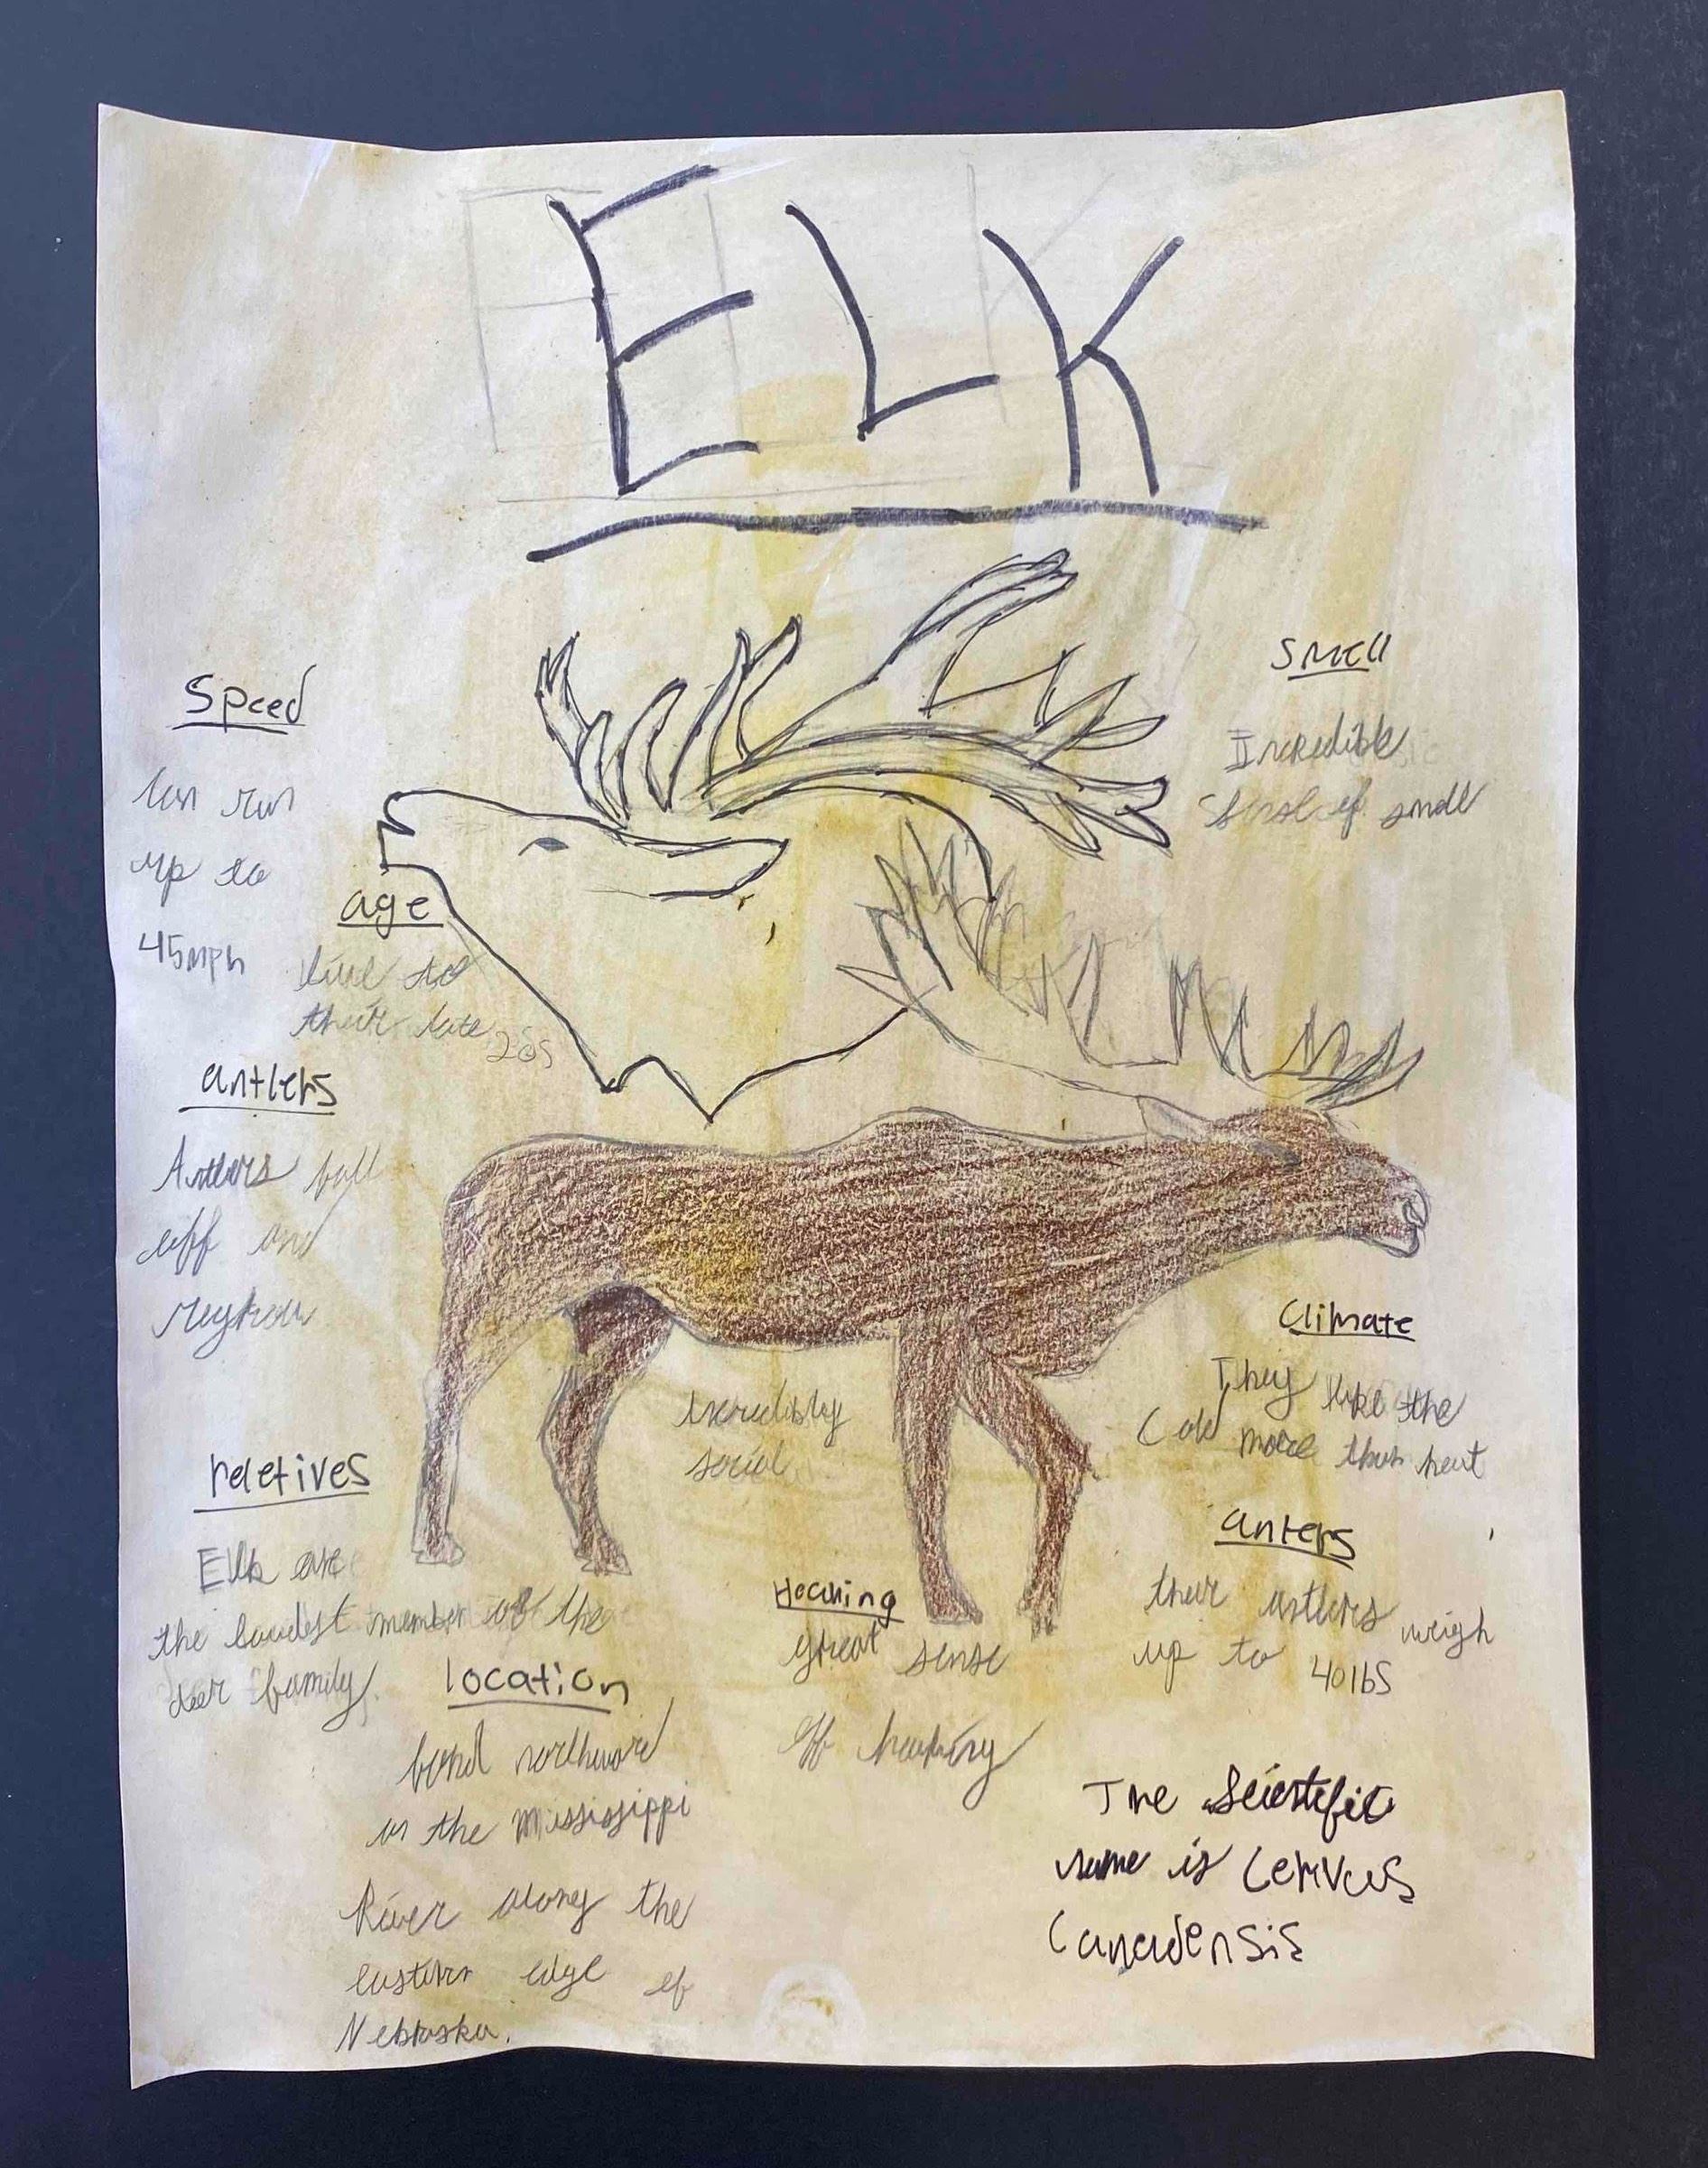 ELK
Speed
can run
up to
45mph
Smell
Incredible
Sense of smell
age
live to
their late 20s
antlers
Antlers fall
off and
regrow
reletives
Elk are
the loudest member of the
deer family.
Incredibly
social
Climate
They like the
Cold more than heat
anters
their antlers weigh
up to 40lbs
Hearing
great sense
of hearing
location
northward
in the Mississippi
River along the
eastern edge of
Nebraska.
The Scientific
name is Cervus
Canadensis